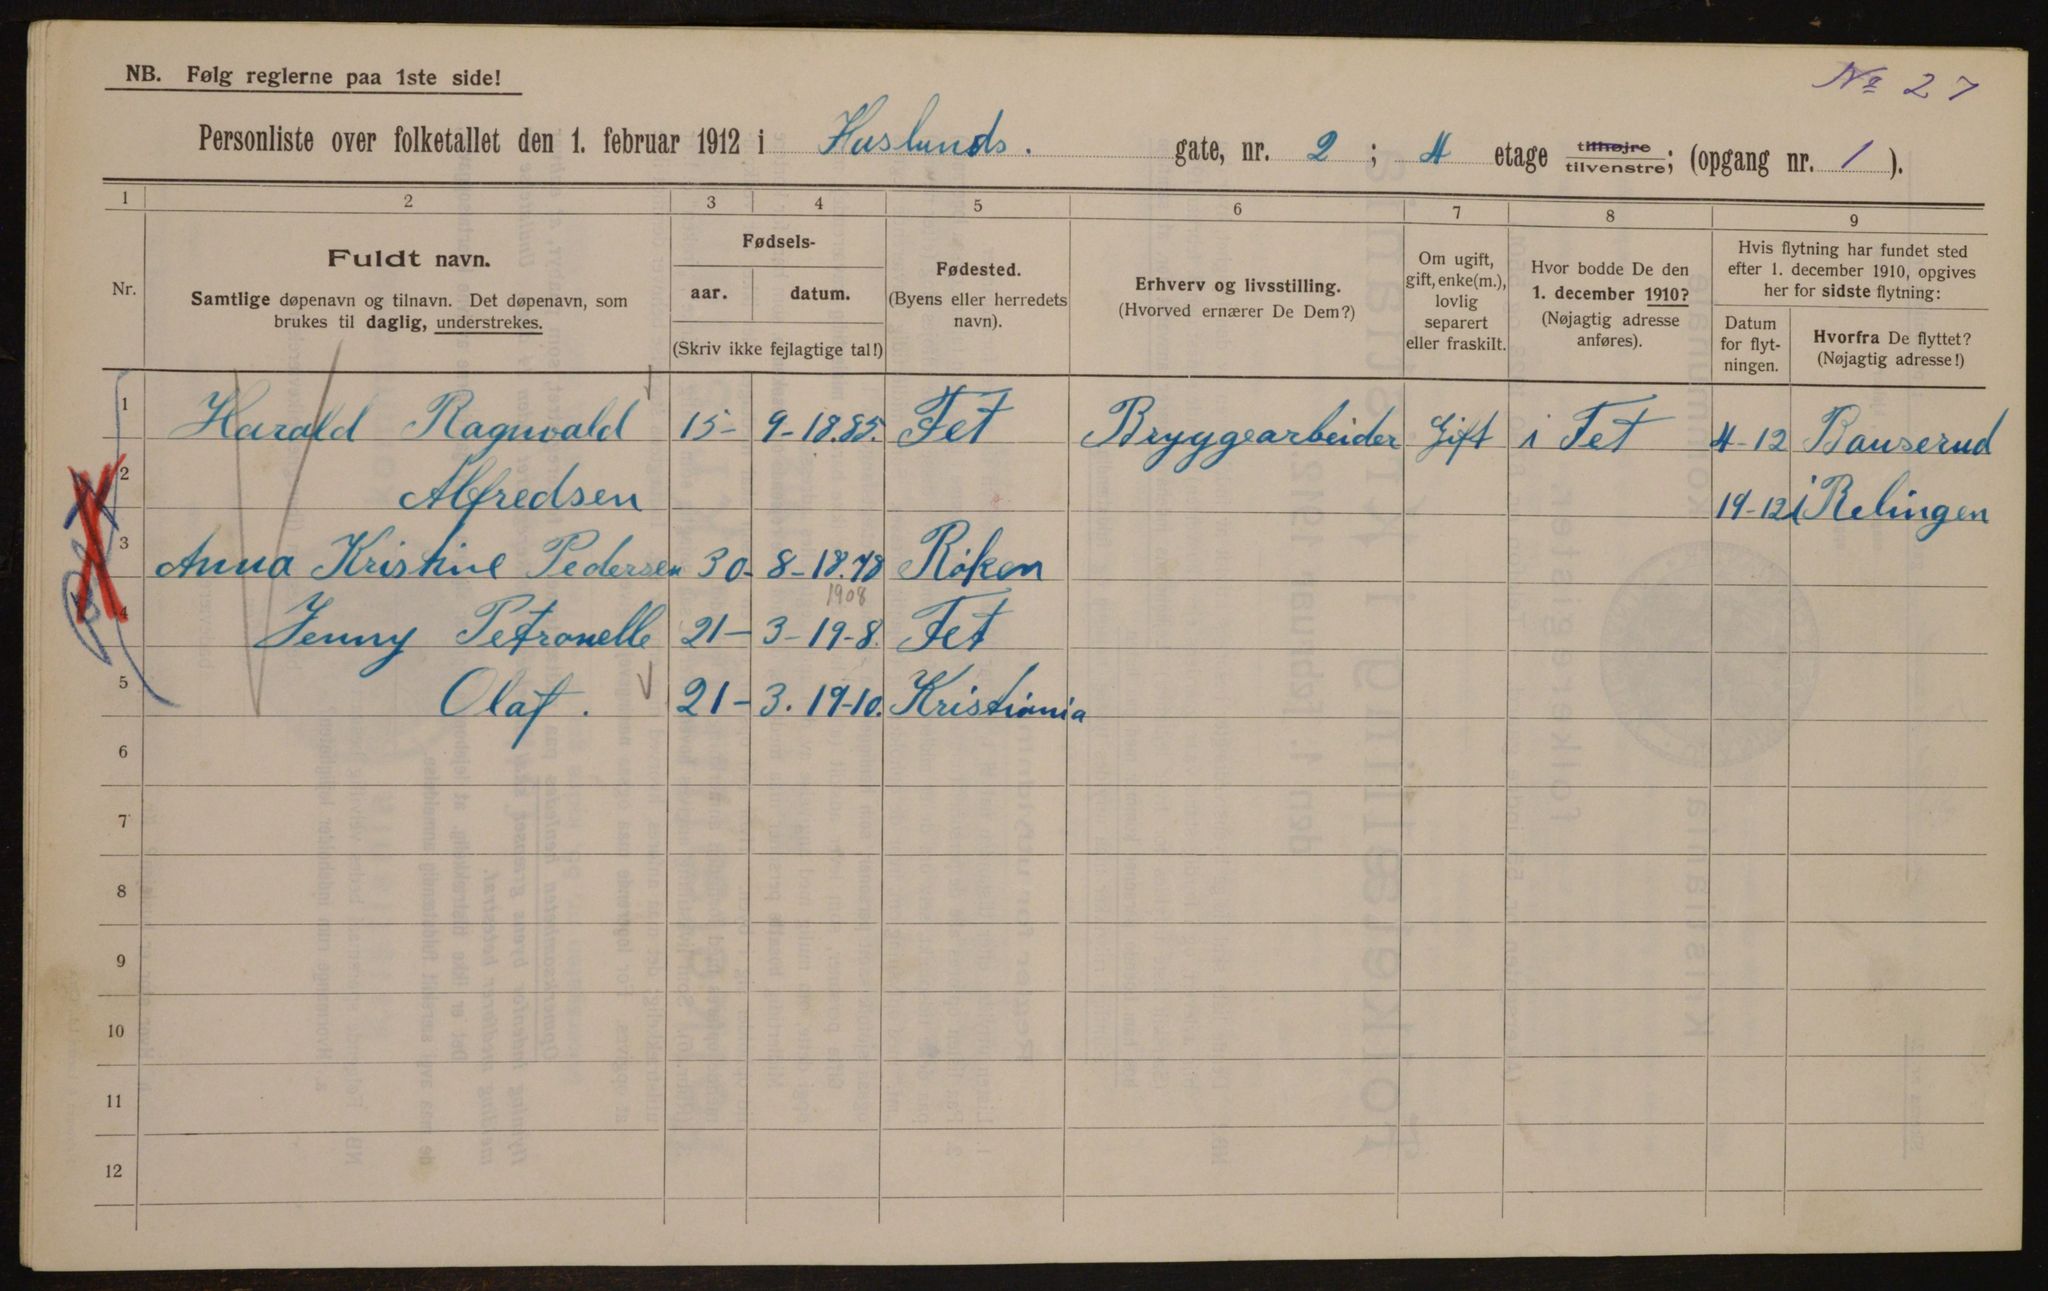 NB. Følg reglerne paa 1ste side!
No 27
Personliste over folketallet den 1. februar 1912 i Haslunds. gate, nr. 2 ; 4 etage tilhøjre tilvenstre; (opgang nr. 1 ).
1 2 3 4 5 6 7 8 9
Nr.
Fuldt navn.
Samtlige døpenavn og tilnavn. Det døpenavn, som
brukes til daglig, understrekes.
Fødsels-
aar. datum.
(Skriv ikke fejlagtige tal!)
Fødested.
(Byens eller herredets
navn).
Erhverv og livsstilling.
(Hvorved ernærer De Dem?)
Om ugift,
gift, enke(m.),
lovlig
separert
eller fraskilt.
Hvor bodde De den
1. december 1910?
(Nøjagtig adresse
anføres).
Hvis flytning har fundet sted
efter 1. december 1910, opgives
her for sidste flytning:
Datum
for flyt-
ningen.
Hvorfra De flyttet?
(Nøjagtig adresse!)
1 Harald Ragnvald 15- 9-18.85. Fet Bryggearbeider Gift i Fet 4-12 Bauserud
2 Alfredsen 19-12 i Relingen
3 Anna Kristine Pedersen 30- 8-18.78 Røken
1908
4 Jenny Petronelle 21- 3-19-8. Fet
5 Olaf. 21- 3. 19-10. Kristiania
6
7
8
9
10
11
12